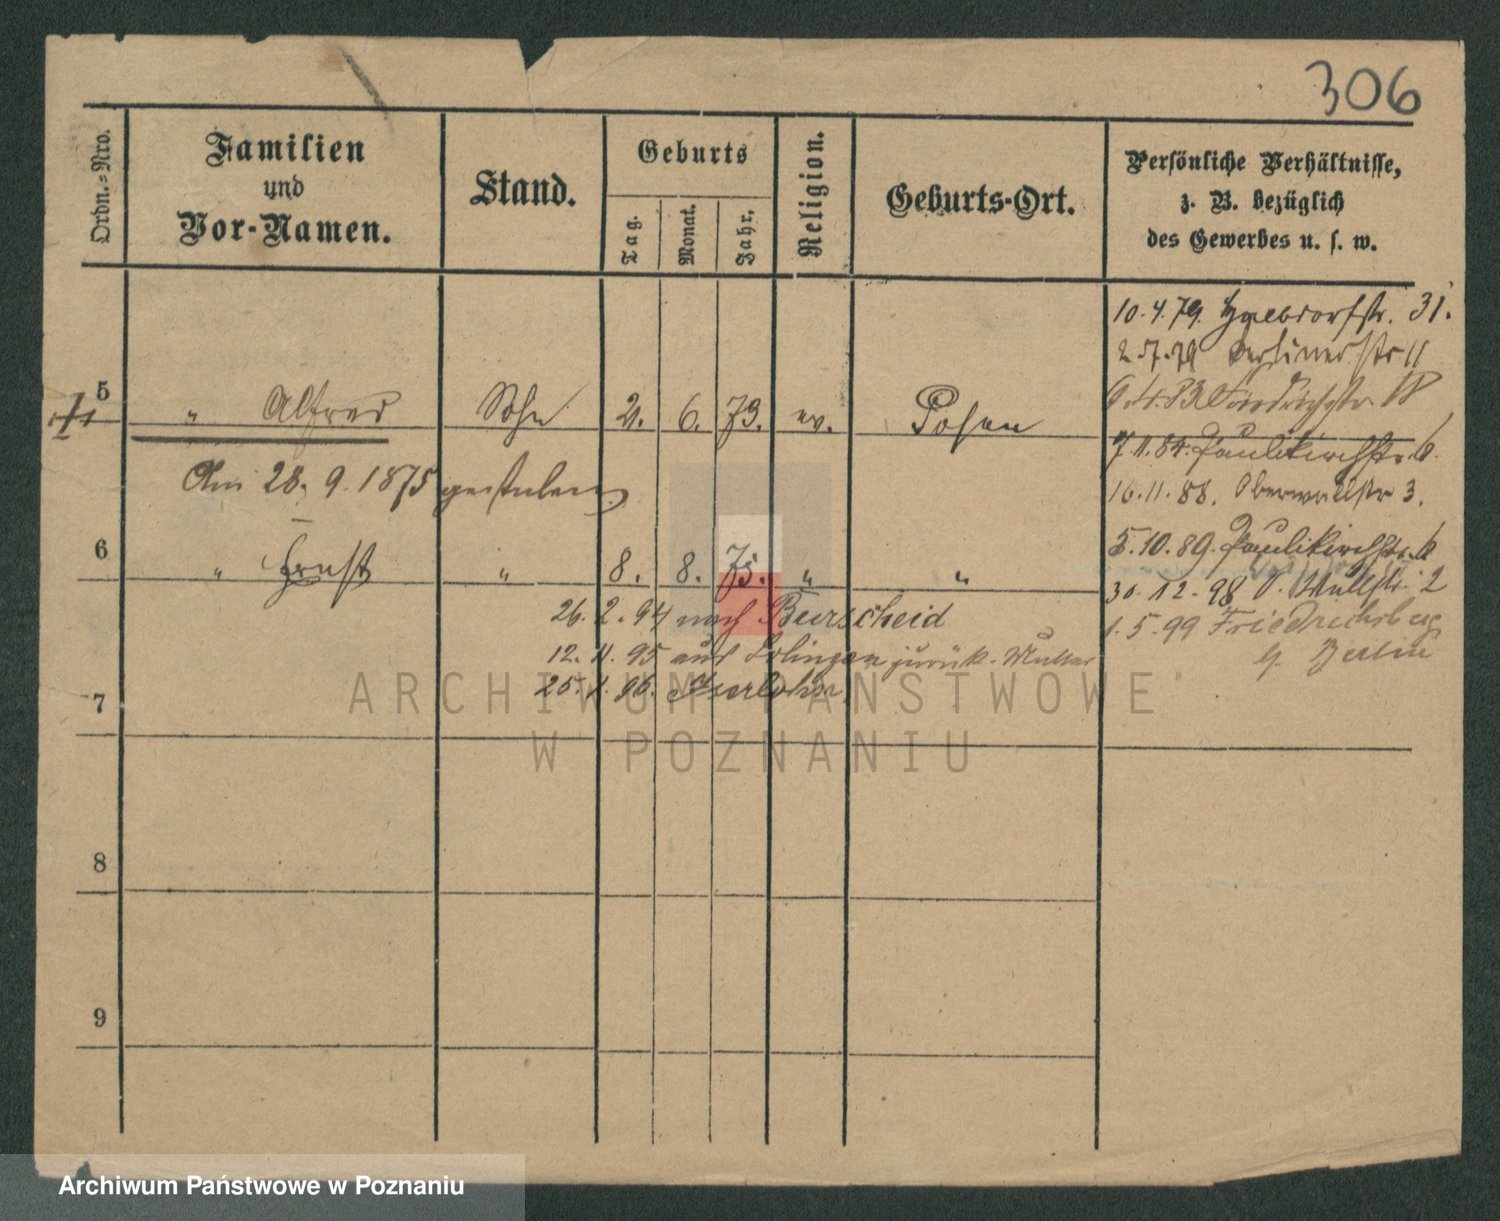 306
Ordn.-Nro.
Familien
und
Vor-Namen.
Stand.
Geburts
Tag.
Monat.
Jahr.
Religion.
Geburts-Ort.
Persönliche Verhältnisse,
z. B. bezüglich
des Gewerbes u. s. w.
10.4.79. 31.
79 Berlinerstr 11
83 Friedrichstr 18
5 " Alfred Sohn 2. 6. 73. ev. Posen
7.11.84. Paulikirchstr. 6.
Am 28. 9. 1875 gestorben
16.11.88. Oberwallstr 3.
5.10.89. Paulikirchstr. 6
6 " Ernst " 8. 8. 75. " "
30.12.98 O. Wallstr 2
26. 2. 94 nach Burscheid
1.5.99 Friedrichsberg
b. Berlin
12. 11. 95 aus Solingen zurück - Mutter
25. 1. 96. Iserlohn
7
8
9
ARCHIWUM PAŃSTWOWE
W POZNANIU
Archiwum Państwowe w Poznaniu